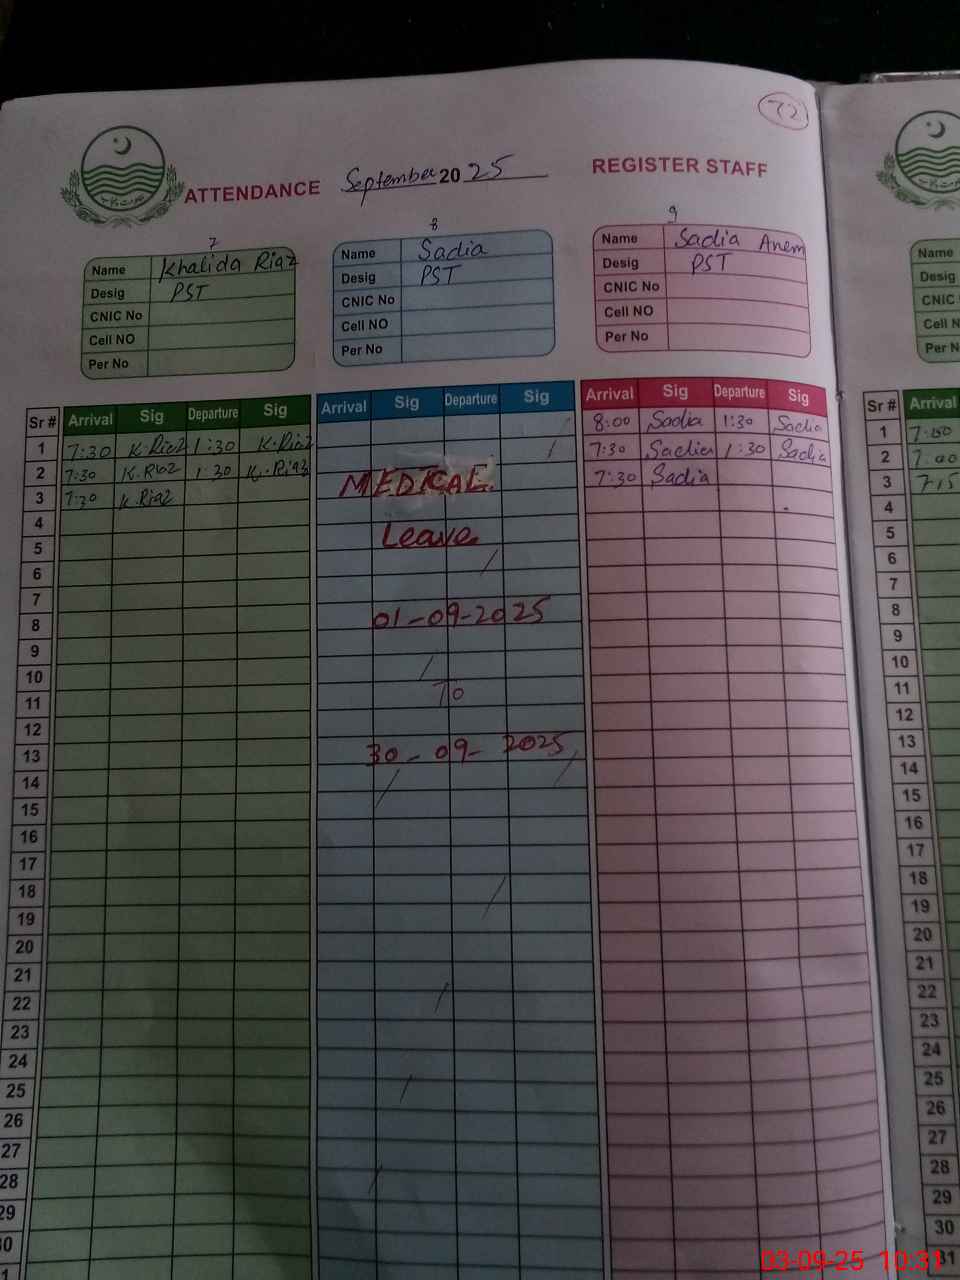 72
ATTENDANCE September 2025 REGISTER STAFF
7 8 9
Name Khalida Riaz Name Sadia Name Sadia Anem Name
Desig PST Desig PST Desig PST Desig
CNIC No CNIC No CNIC No CNIC
Cell NO Cell NO Cell NO Cell N
Per No Per No Per No Per N
Sr # Arrival Sig Departure Sig Arrival Sig Departure Sig Arrival Sig Departure Sig Sr # Arrival
1 7:30 K.Riaz 1:30 K.Riaz 8:00 Sadia 1:30 Sadia 1
2 7:30 K.Riaz 1:30 K.Riaz 7:30 Sadia 1:30 Sadia 2 7:00
3 7:30 K.Riaz MEDICAL 7:30 Sadia 3 7:15
4 4
5 Leave 5
6 6
7 7
8 01-09-2025 8
9 9
10 10
11 To 11
12 12
13 30-09-2025 13
14 14
15 15
16 16
17 17
18 18
19 19
20 20
21 21
22 22
23 23
24 24
25 25
26 26
27 27
28 28
29 29
30 30
31
03-09-25 10:31